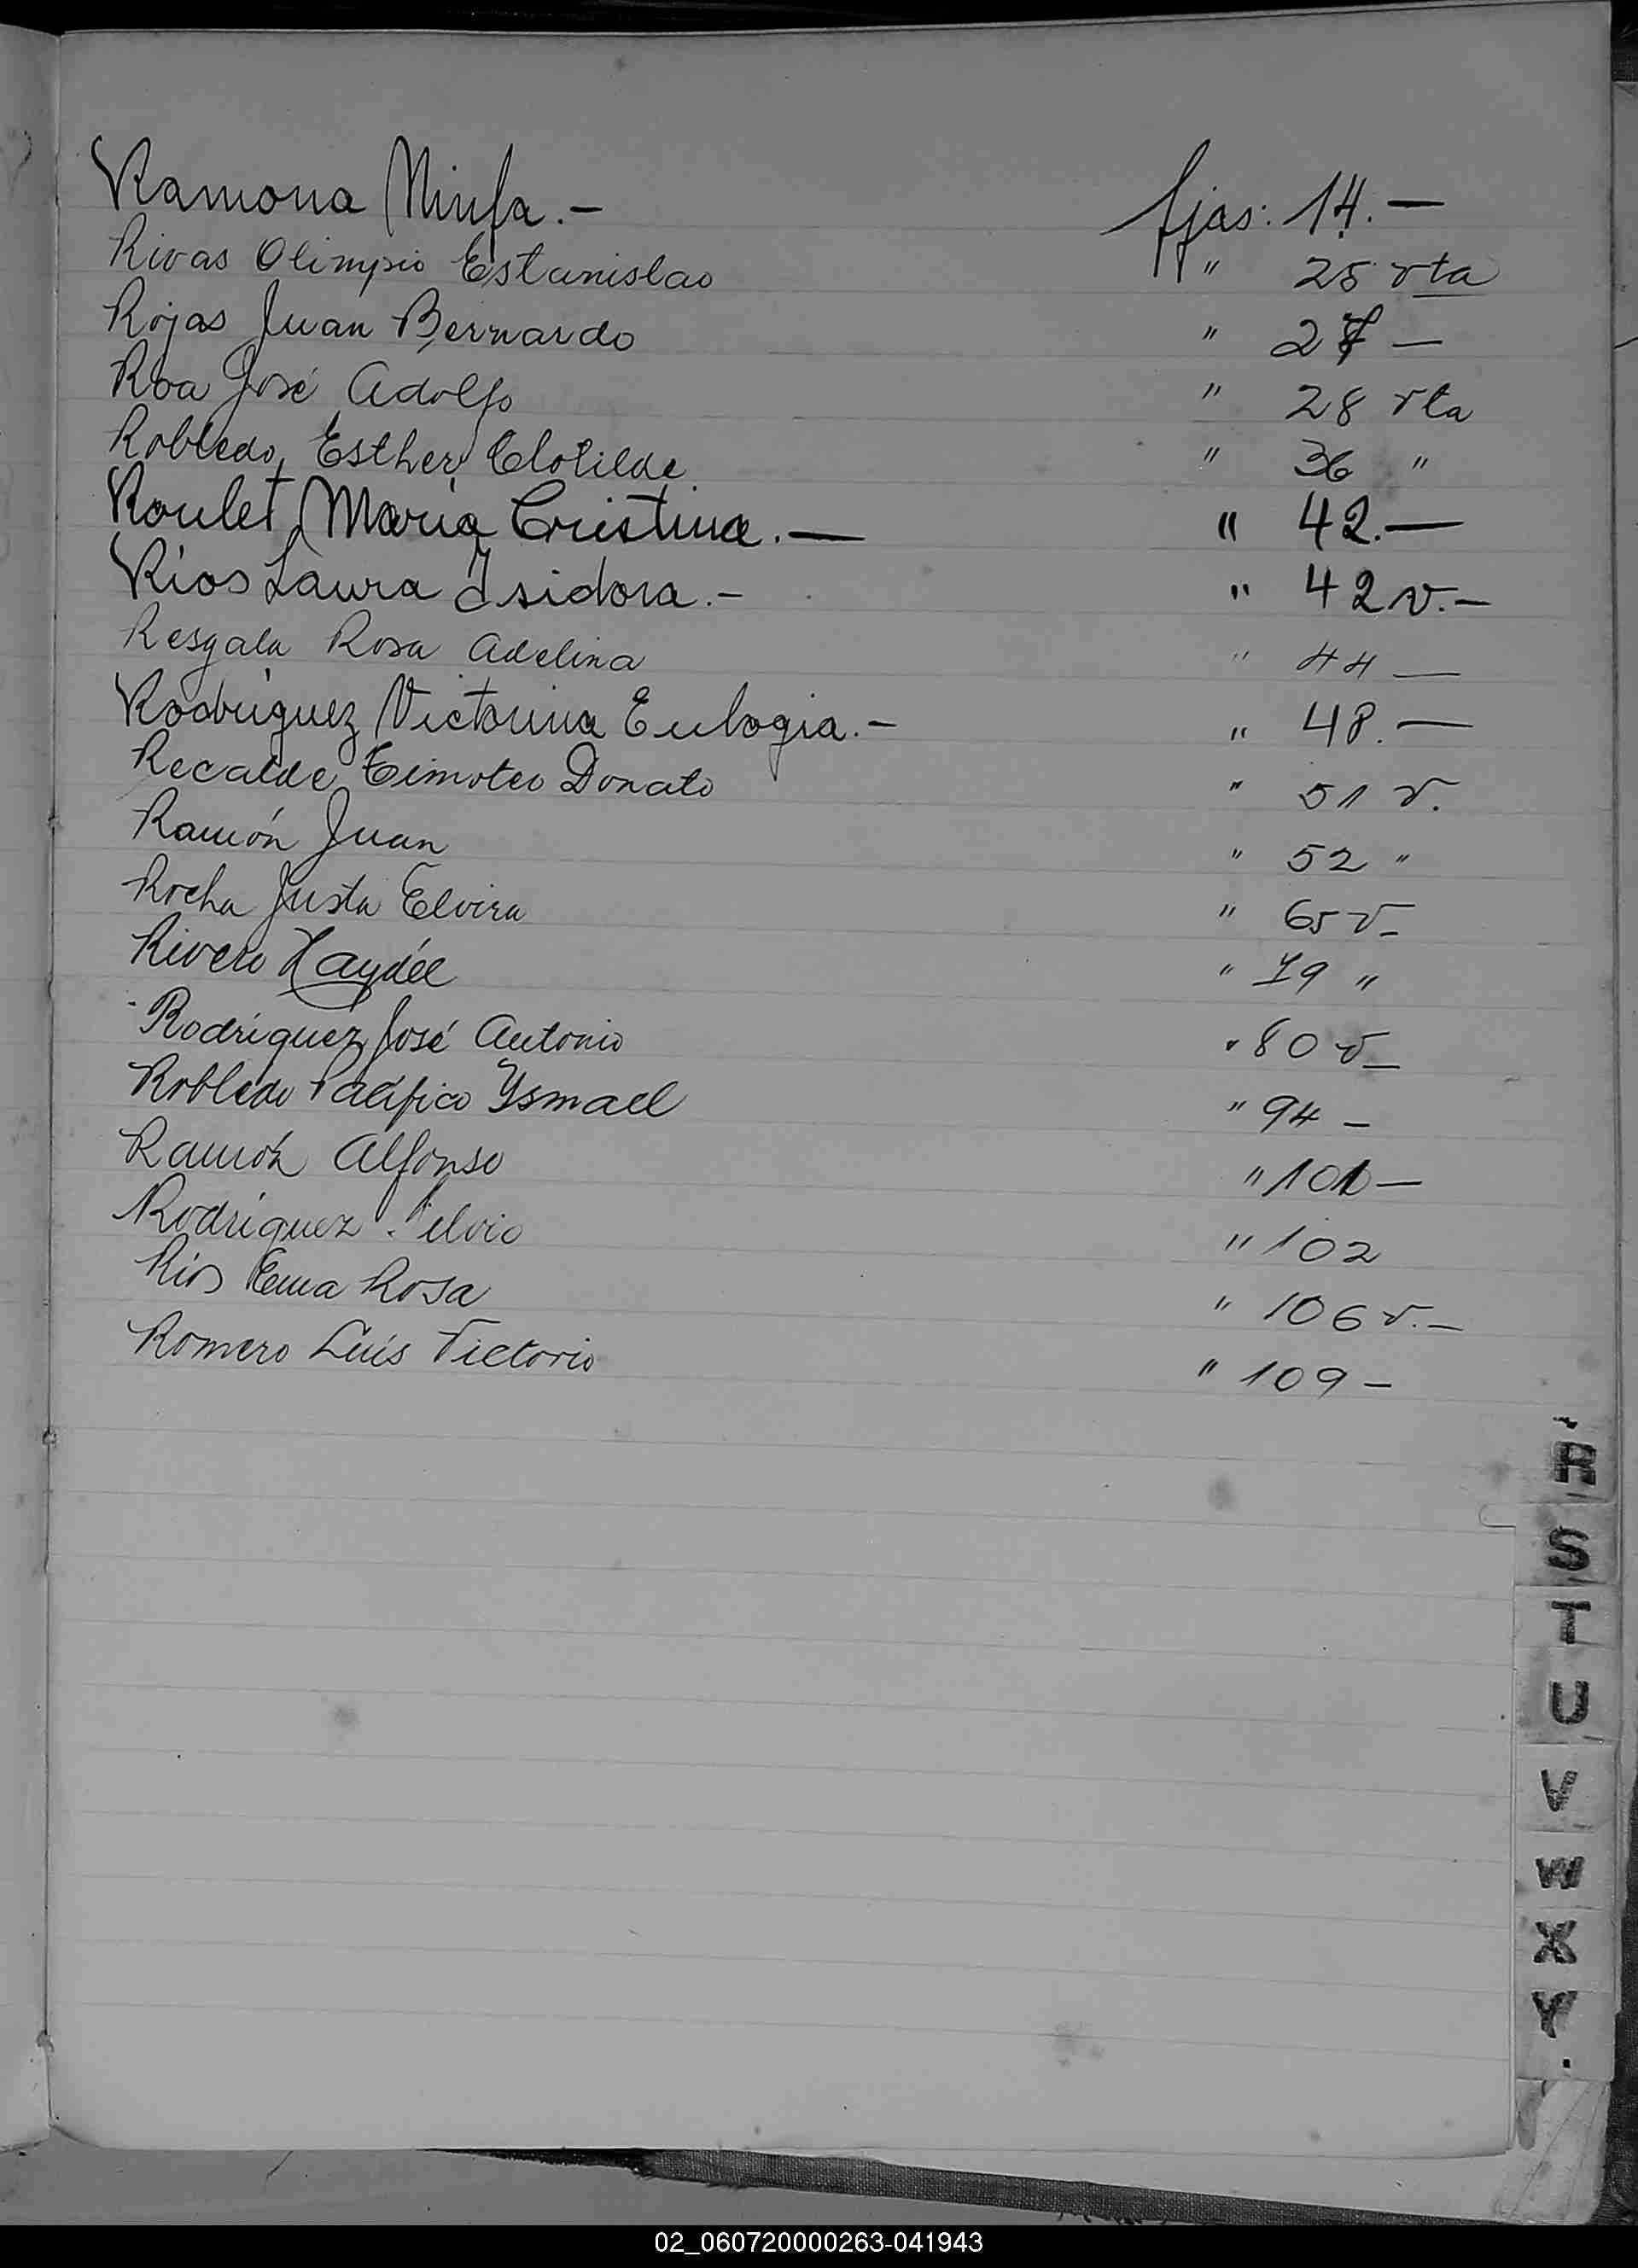 Ramona Ninfa.- fjas: 14.-
Rivas Olimpio Estanislao " 25 vta
Rojas Juan Bernardo " 27 -
Roa José Adolfo " 28 vta
Robledo, Esther Clotilde " 36 "
Roulet María Cristina.- " 42.-
Ríos Laura Isidora.- " 42 v.-
Resgala Rosa Adelina " 44 -
Rodríguez Victorina Eulogia.- " 48.-
Recalde Timoteo Donato " 51 v.
Ramón Juan " 52 "
Rocha Justa Elvira " 65 v-
Rivero Haydée " 79 "
Rodríguez José Antonio " 80 v-
Robledo Pacífico Ysmael " 94 -
Ramón Alfonso " 101-
Rodríguez " 102
Ríos Ema Rosa " 106 v.-
Romero Luís Victorio " 109 -
R
S
T
U
V
W
X
Y
02_060720000263-041943